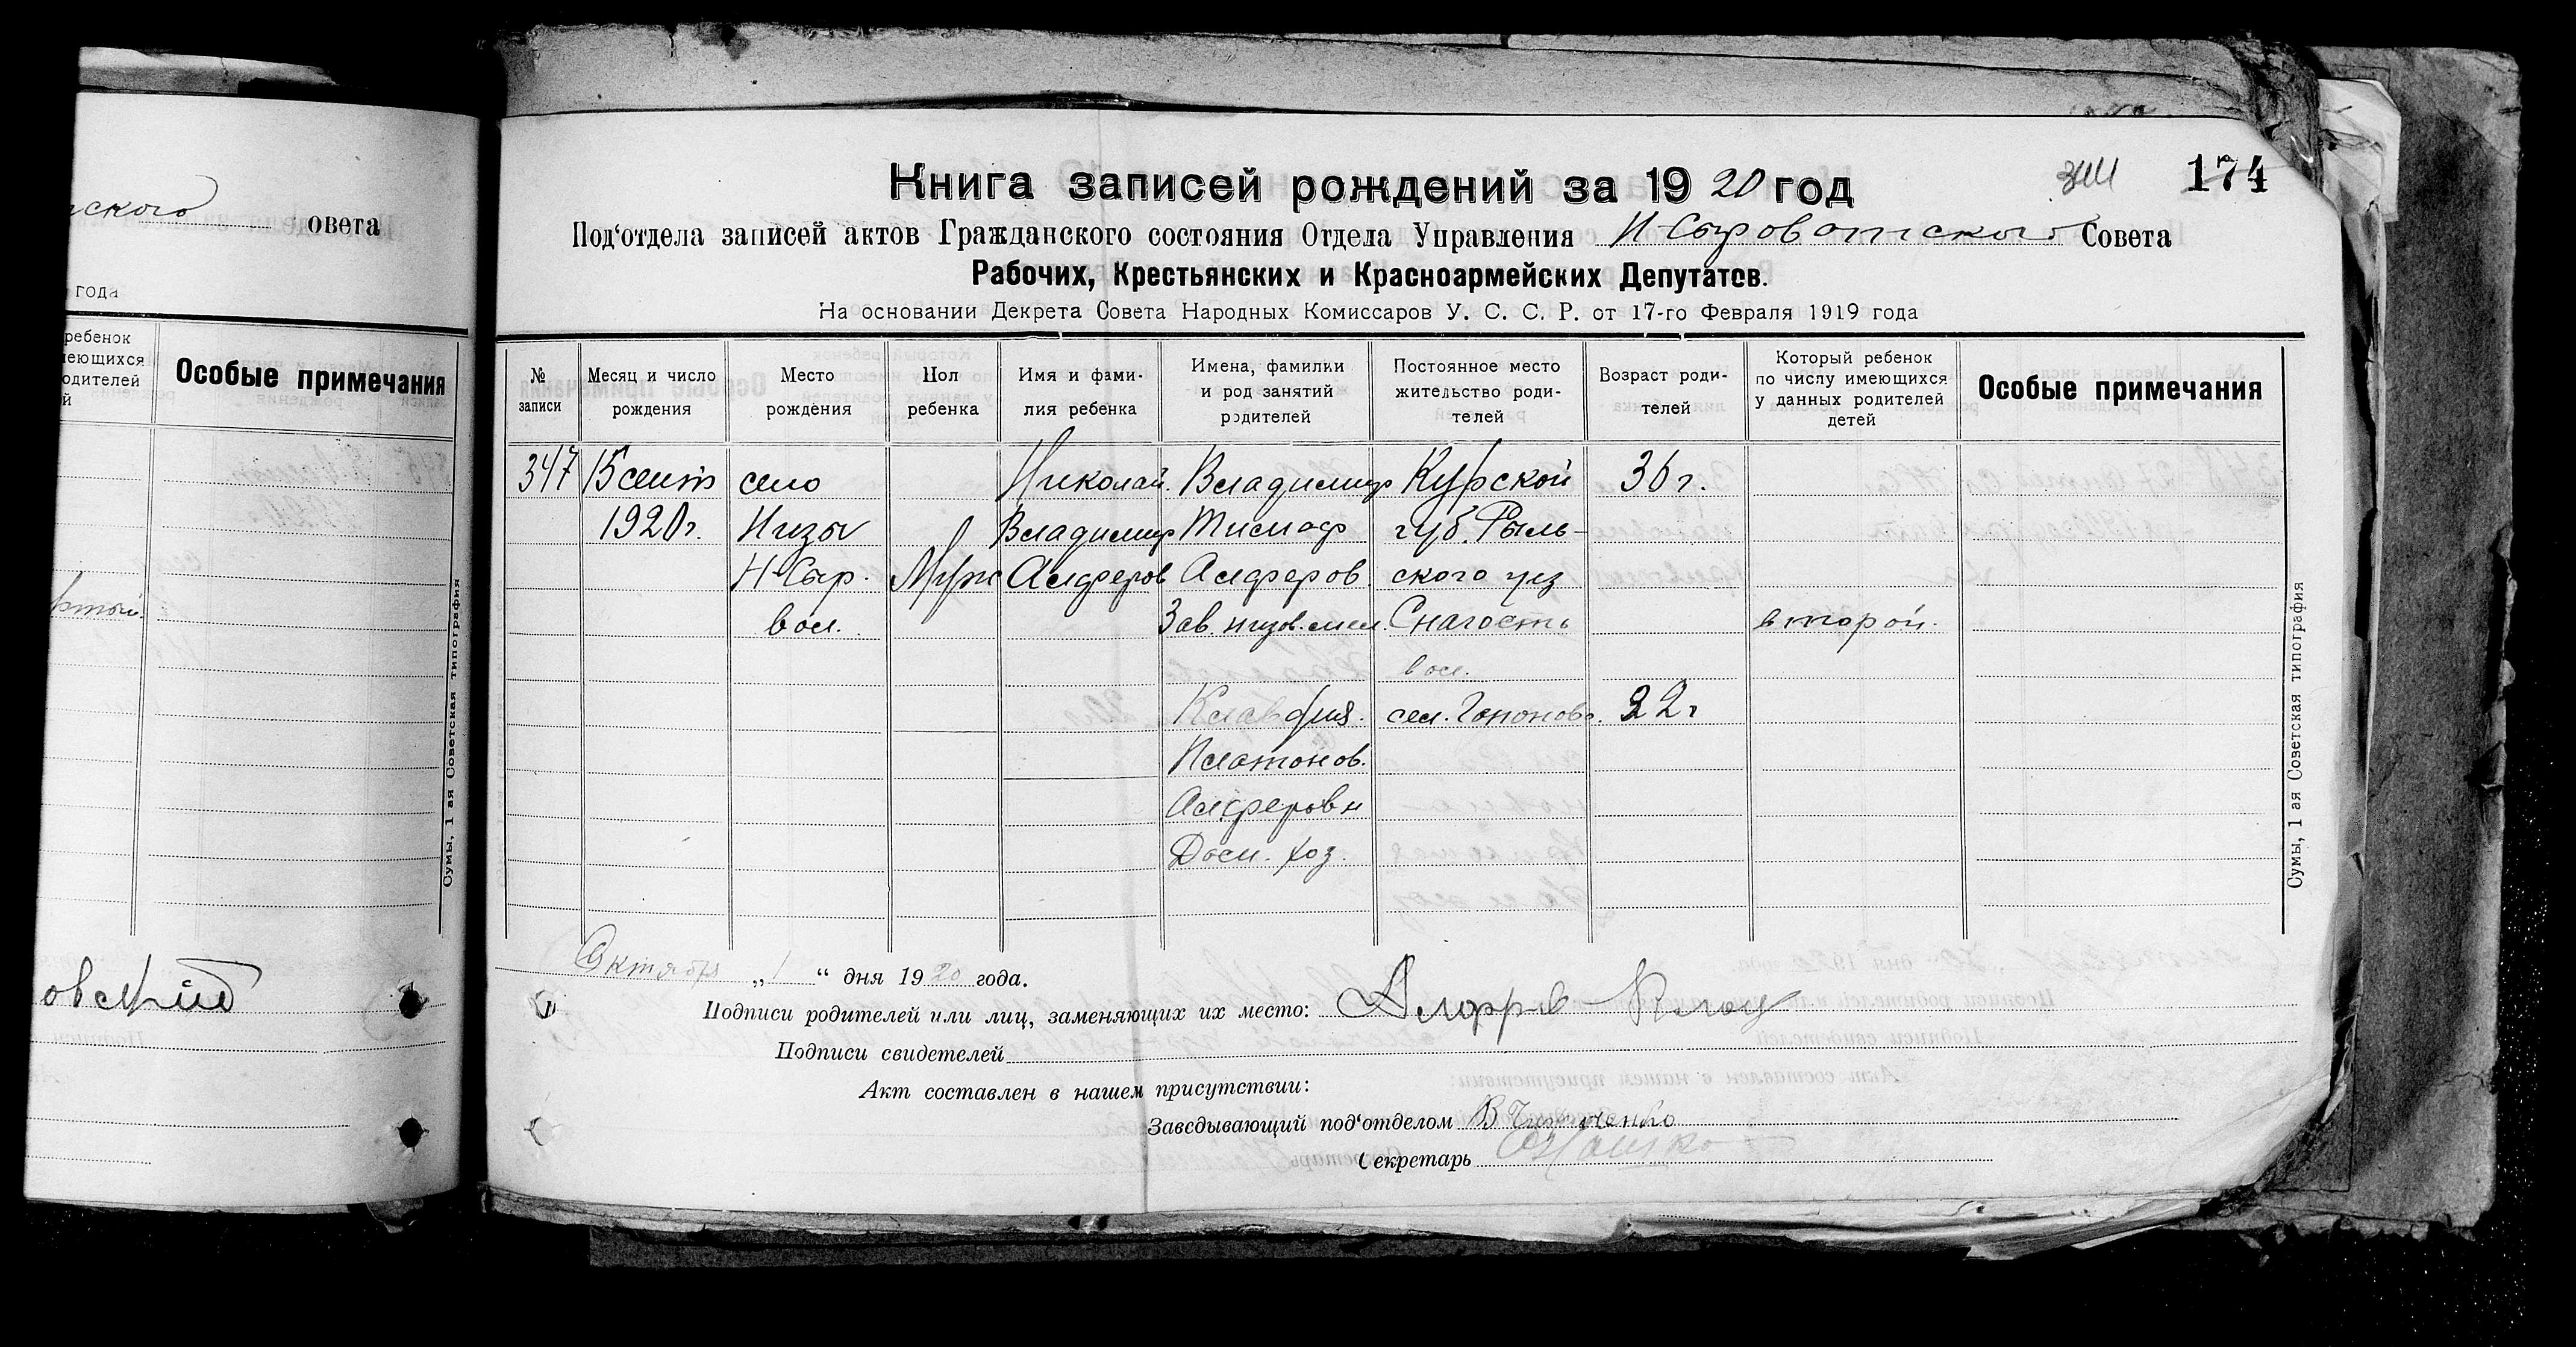 ского овета
года
ребенок
меющихся
одителей
й
Особые примечания
Сумы, 1 ая Советская типография
174
Книга записей рождений за 1920 год
Под‘отдела записей актов Гражданского состояния Отдела Управления Н-Сыроватского Совета
Рабочих, Крестьянских и Красноармейских Депутатсв.
На основании Декрета Совета Народных Комиссаров У. С. С. Р. от 17-го Февраля 1919 года
№ записи
Месяц и число рождения
Место рождения
Пол ребенка
Имя и фами-
лия ребенка
Имена, фамилии
и род занятий
родителей
Постоянное место
жительство роди-
телей
Возраст роди-
телей
Который ребенок
по числу имеющихся
у данных родителей
детей
Особые примечания
347 15 сент село Николай. Владимир Курской 36 г.
1920 г. Низы Владимир Тимоф губ. Рыль-
Н-Сыр. Муж Алферов Алферов ского уез
вол. Зав. низов. Снагость второй.
вол.
Клавдия. сел. 22 г
Платонов.
Алферовы
Дом. хоз.
Октября „1“ дня 1920 года.
Подписи родителей или лиц, заменяющих их место:
Подписи свидетелей
Акт составлен в нашем присутствии:
Заведывающий под‘отделом В
Секретарь
Сумы, 1 ая Советская типография